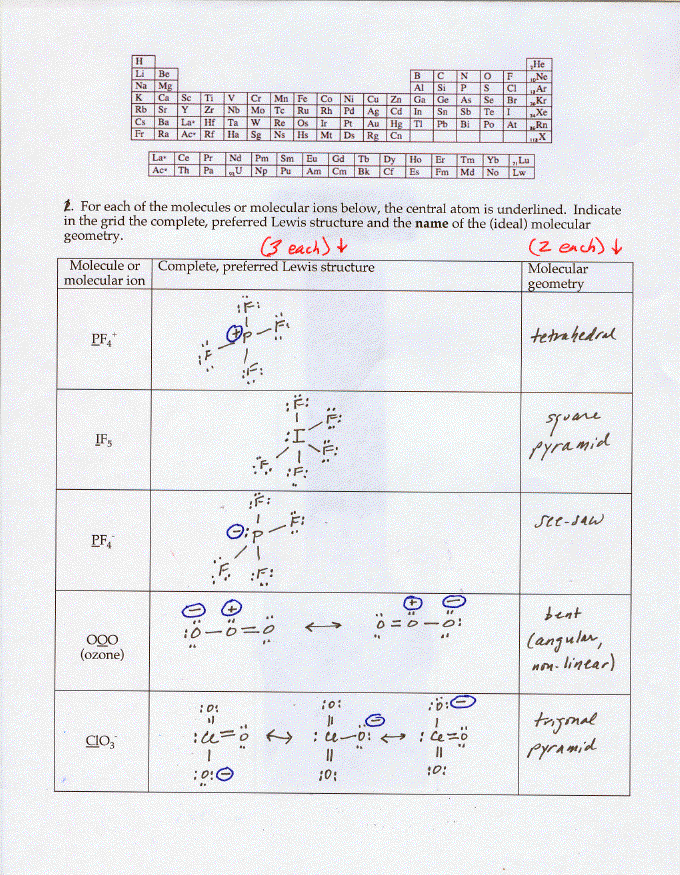 H ₂He
Li Be B C N O F ₁₀Ne
Na Mg Al Si P S Cl ₁₈Ar
K Ca Sc Ti V Cr Mn Fe Co Ni Cu Zn Ga Ge As Se Br ₃₆Kr
Rb Sr Y Zr Nb Mo Tc Ru Rh Pd Ag Cd In Sn Sb Te I ₅₄Xe
Cs Ba La* Hf Ta W Re Os Ir Pt Au Hg Tl Pb Bi Po At ₈₆Rn
Fr Ra Ac* Rf Ha Sg Ns Hs Mt Ds Rg Cn ₁₁₈X
La* Ce Pr Nd Pm Sm Eu Gd Tb Dy Ho Er Tm Yb ₇₁Lu
Ac* Th Pa ₉₂U Np Pu Am Cm Bk Cf Es Fm Md No Lw
For each of the molecules or molecular ions below, the central atom is underlined. Indicate
in the grid the complete, preferred Lewis structure and the name of the (ideal) molecular
geometry.
(3 each) ↓ (2 each) ↓
Molecule or Complete, preferred Lewis structure Molecular
molecular ion geometry
F
PF₄⁺ ⊕ P F tetrahedral
F
F
F
F
IF₅ I square
F pyramid
F F
F
F
PF₄⁻ ⊖ P see-saw
F F
⊖ ⊕ ⊕ ⊖ bent
O – O = O ↔ O = O – O (angular,
OOO non-linear)
(ozone)
O O O ⊖
ClO₃⁻ Cl = O ↔ Cl – O ⊖ ↔ Cl = O trigonal
O ⊖ O O pyramid